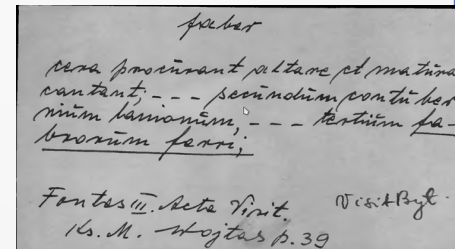 faber
cera procurant altare et matura
cantant; --- secundum contuber
nium lanionum, --- tertium fa-
brorum ferri;
Fontes III. Acta Visit. Visit Byt.
Ks. M. Wojtas p. 39